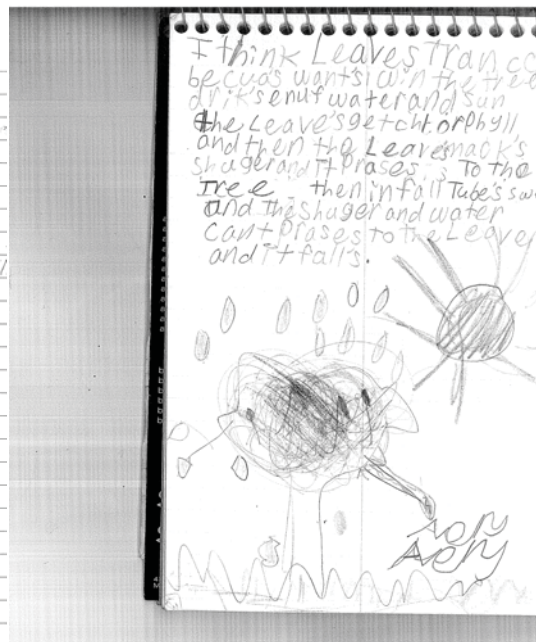 I think Leaves Tran cc
becuas wants win the tree
drik's enuf water and sun
the Leave's get chlorphyll
and then the Leaves mack's
shuger and it Prases To the
Tree then in fall Tube's sw
and The shuger and water
cant Prases to the Leave
and it fall's.